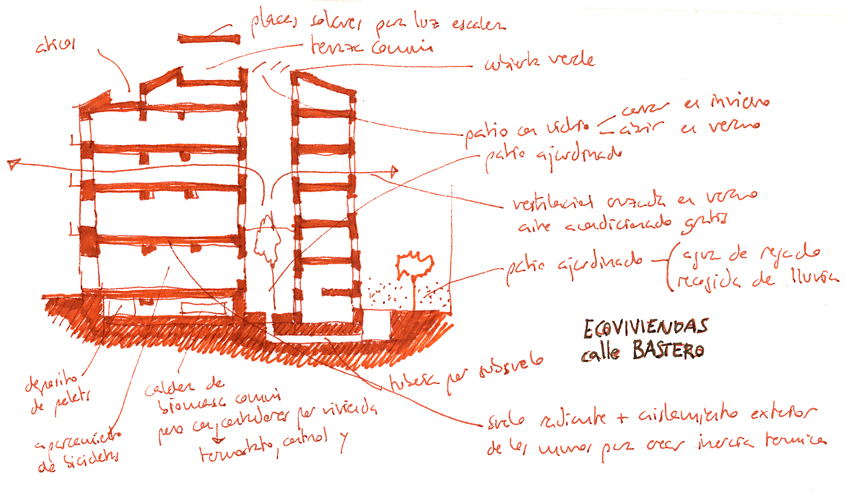 placas solares para luz escalera
terraza común
aticos
cubierta verde
patio con vidrio
cerrar en invierno
abrir en verano
patio ajardinado
ventilacion cruzada en verano
aire acondicionado gratis
patio ajardinado
agua de regado
recogida de lluvia
ECOVIVIENDAS
calle BASTERO
tuberia por subsuelo
deposito
de pelets
caldera de
biomasa comun
pero con contadores por vivienda
termostato, control y
aparcamiento
de bicicletas
suelo radiante + aislamiento exterior
de los muros para crear inercia termica